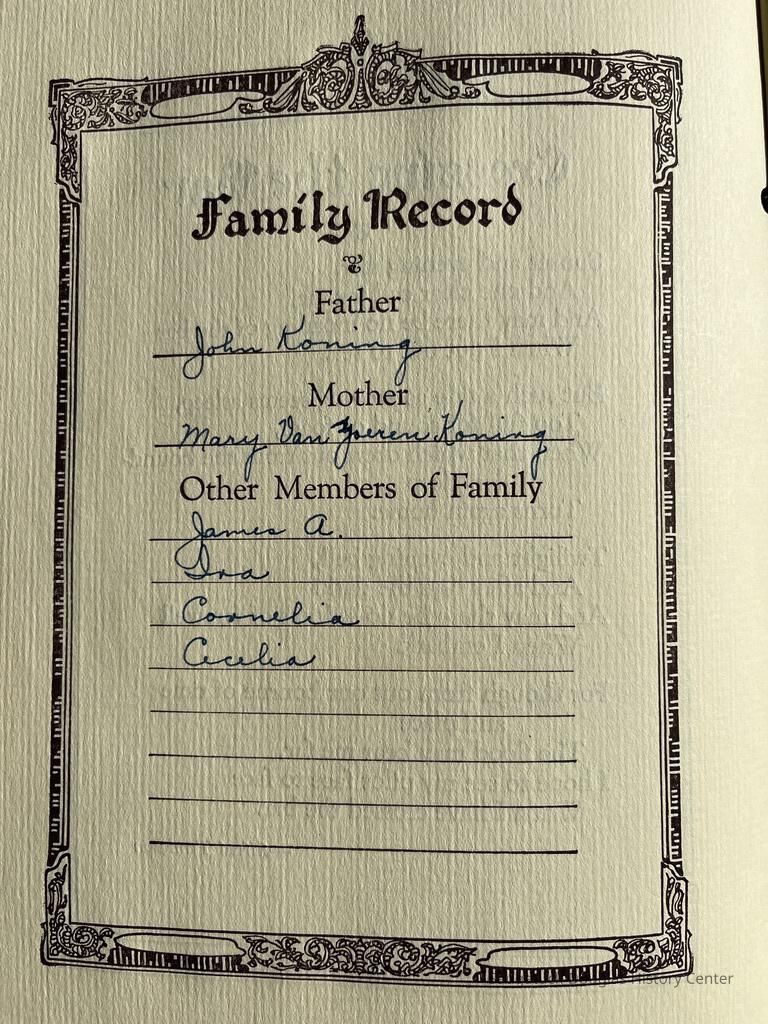 Family Record
Father
John Koning
Mother
Mary Van Koning
Other Members of Family
James A.
Ira
Cornelia
Cecelia
History Center